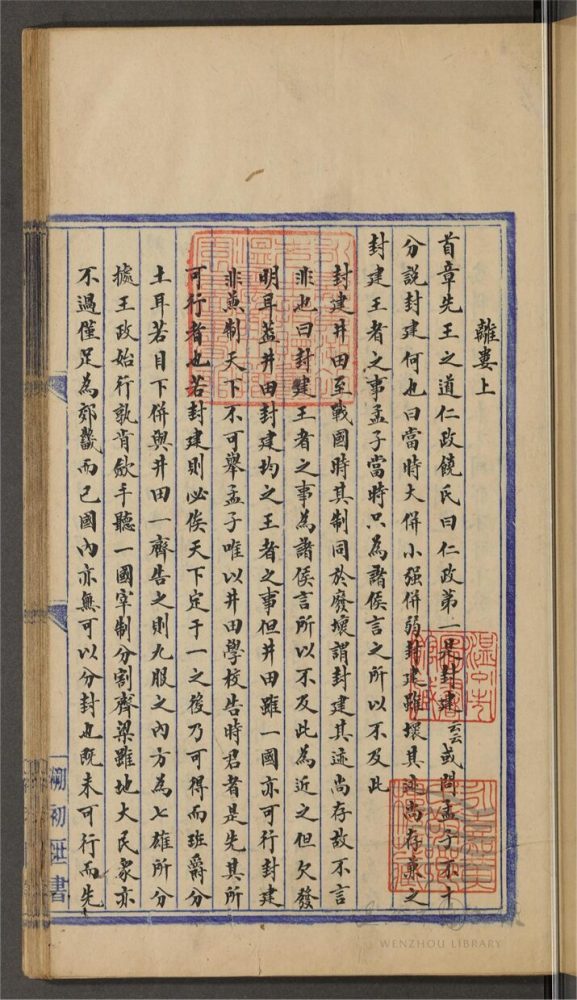 離婁上
首章先王之道仁政饒氏曰仁政第一是封建云云或問孟子不十
分說封建何也曰當時大併小强併弱封建雖壞其迹尚存兼之
封建王者之事孟子當時只為諸侯言之所以不及此
封建井田至戰國時其制同於廢壞謂封建其迹尚存故不言
非也曰封建王者之事為諸侯言所以不及此為近之但欠發
明耳葢井田封建均之王者之事但井田雖一國亦可行封建
非兼制天下不可舉孟子唯以井田學校告時君者是先其所
可行者也若封建則必俟天下定于一之後乃可得而班爵分
土耳若目下併與井田一齊告之則九服之內方為七雄所分
據王政始行孰肯歛手聽一國宰制分割齊梁雖地大民衆亦
不過僅足為郊畿而已國內亦無可以分封也旣未可行而先
WENZHOU LIBRARY